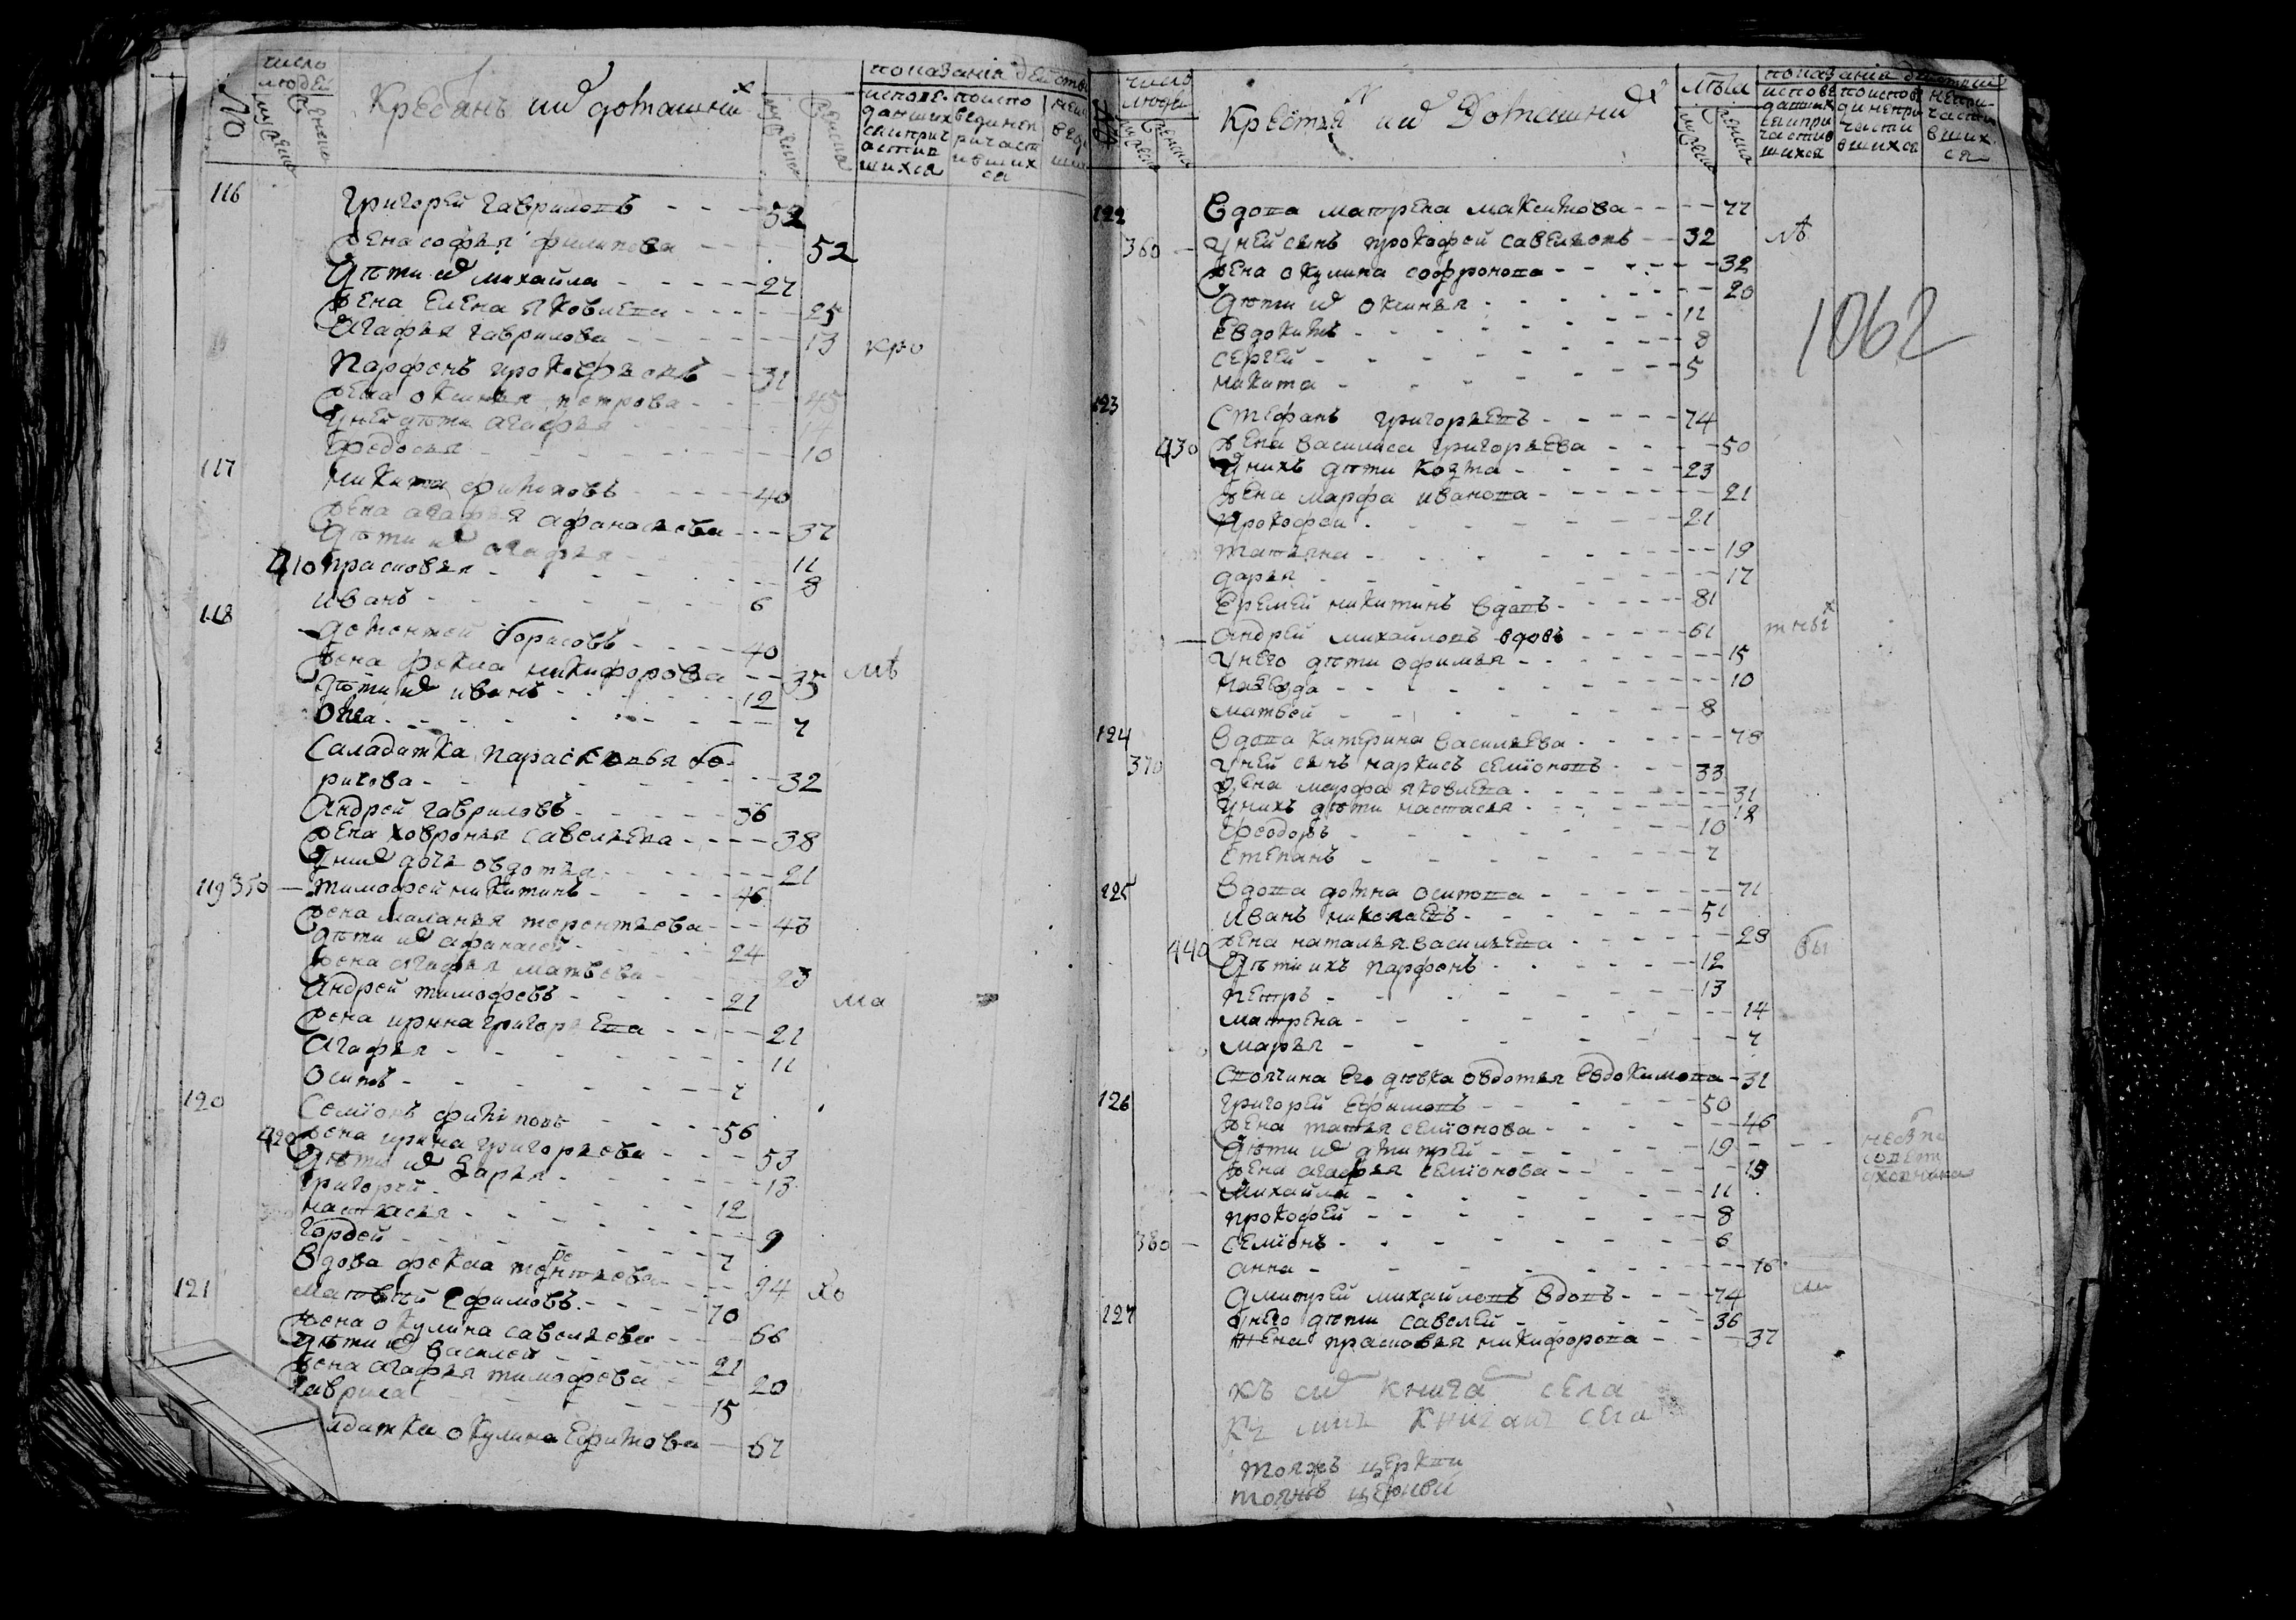 число людей
№ мужеска женска
Кресянъ ид домашних
мужеска женска
показаніи действ
исповедавшихся и причастившихся
поисповединепричастившихся
116 Григорей Гавриловъ - - - 52
жена софья филипова - - 52
дети их михайла - - - - - 27
жена Елена Яковлева - - - - - 25
Агафья гаврилова - - - - - - 13
Парфенъ прокофьевъ - - 31
жена оксинья петрова - - - 45
у ней дети агафья - - -
Федосья - - - - 10
117 микита филиповъ - - - - 40
жена агафья афанасьева - - - 37
дети их агафья - - 11
410 прасковья - - - - 8
иванъ - - - - - - - - 6
118 дементей борисовъ - - - - 40
жена фекла никифорова - - 35
дети их иванъ - - - - 12
Анна - - - - - - - 7
Саладатка Парасковья бо-
рисова - - - - - - - - 32
Андрей гавриловъ - - - - - 36
жена ховронья савельева - - - - 38
у них дочь овдотья - - - - - - 21
119 350 — тимофей микитинъ - - - - 46
жена маланья терентьева - - - 43
дети их афанасей - - - - 24
жена агафья матвеева - - - 23
Андрей тимофеевъ - - - - 21
ма
жена ирина григорьева - - - - 21
Агафья - - - - - - - 11
Осипъ - - - - - - - 7
120 Семионъ филиповъ - - - 56
420 жена ирина григорьева - - - 53
дети их Дарья - - - - - 13
григорей - - - - - - 12
настасья - - - - - - 9
Гордей - - - - - - - 7
вдова фекла терентьева - - - - 94
121 матвей ефимовъ - - - - 70
жена окулина савельева - - - 66
дети их василей - - - - - 21
жена агафья тимофеева - - 20
гаврила - - - - - - 15
лдатка окулина Ефимова - 67
число людей
мужеска женска
Крестья ид Домашних
лета
мужеска женска
показаніи действии
исповедавшихся и причастившихся
поисповединепричастившихся
непричастившихся
122 вдова матрена максимова - - - - 77
360 — у ней сынъ прокофей савельевъ - - 32
жена окулина софронова - - - - - - 32
дети их оксинья - - - - - - - 20
Евдокимъ - - - - - - - 11
сергей - - - - - - - 8
микита - - - - - - - 5
1062
123 Стефанъ григорьевъ - - - - - 74
430 жена василиса григорьева - - - - - 50
у нихъ дети козма - - - - - 23
жена марфа иванова - - - - - - - 21
прокофей - - - - - - - 21
татьяна - - - - - - - 19
дарья - - - - - - - 17
Еремей микитинъ вдовъ - - - - - 81
— андрей михайловъ вдовъ - - - - - 61
у него дети офимья - - - - - - - 15
- - - - - - - 10
матвей - - - - - - - 8
124 вдова катерина васильева - - - - - - 78
370 у ней сынъ наркисъ семіоновъ - - - 33
жена марфа яковлева - - - - - - 31
у нихъ дети настасья - - - - - - - 12
Феодоръ - - - - - - - 10
степанъ - - - - - - - 7
125 вдова домна осипова - - - - - - 71
иванъ николаевъ - - - - - - 51
440 жена наталья васильева - - - - - - 28
дети ихъ парфенъ - - - - - 12
петръ - - - - - - - 13
матрена - - - - - - - 14
марья - - - - - - - 7
его девка овдотья Евдокимова - 31
126 григорей Ефимовъ - - - - - - 50
жена семіонова - - - - - - 46
дети их дмитрей - - - - - - 19
жена агафья семіонова - - - - - - 19
— михайла - - - - - - - 11
прокофей - - - - - - - 8
380 — семіонъ - - - - - - - 6
анна - - - - - - - 10
дмитрей михайловъ вдовъ - - - - 74
127 у него дети савелей - - - - - - 36
жена прасковья никифорова - - - - 37
къ сих книга села
къ симъ книгамъ села
тояжъ церкви
тояжъ церкви